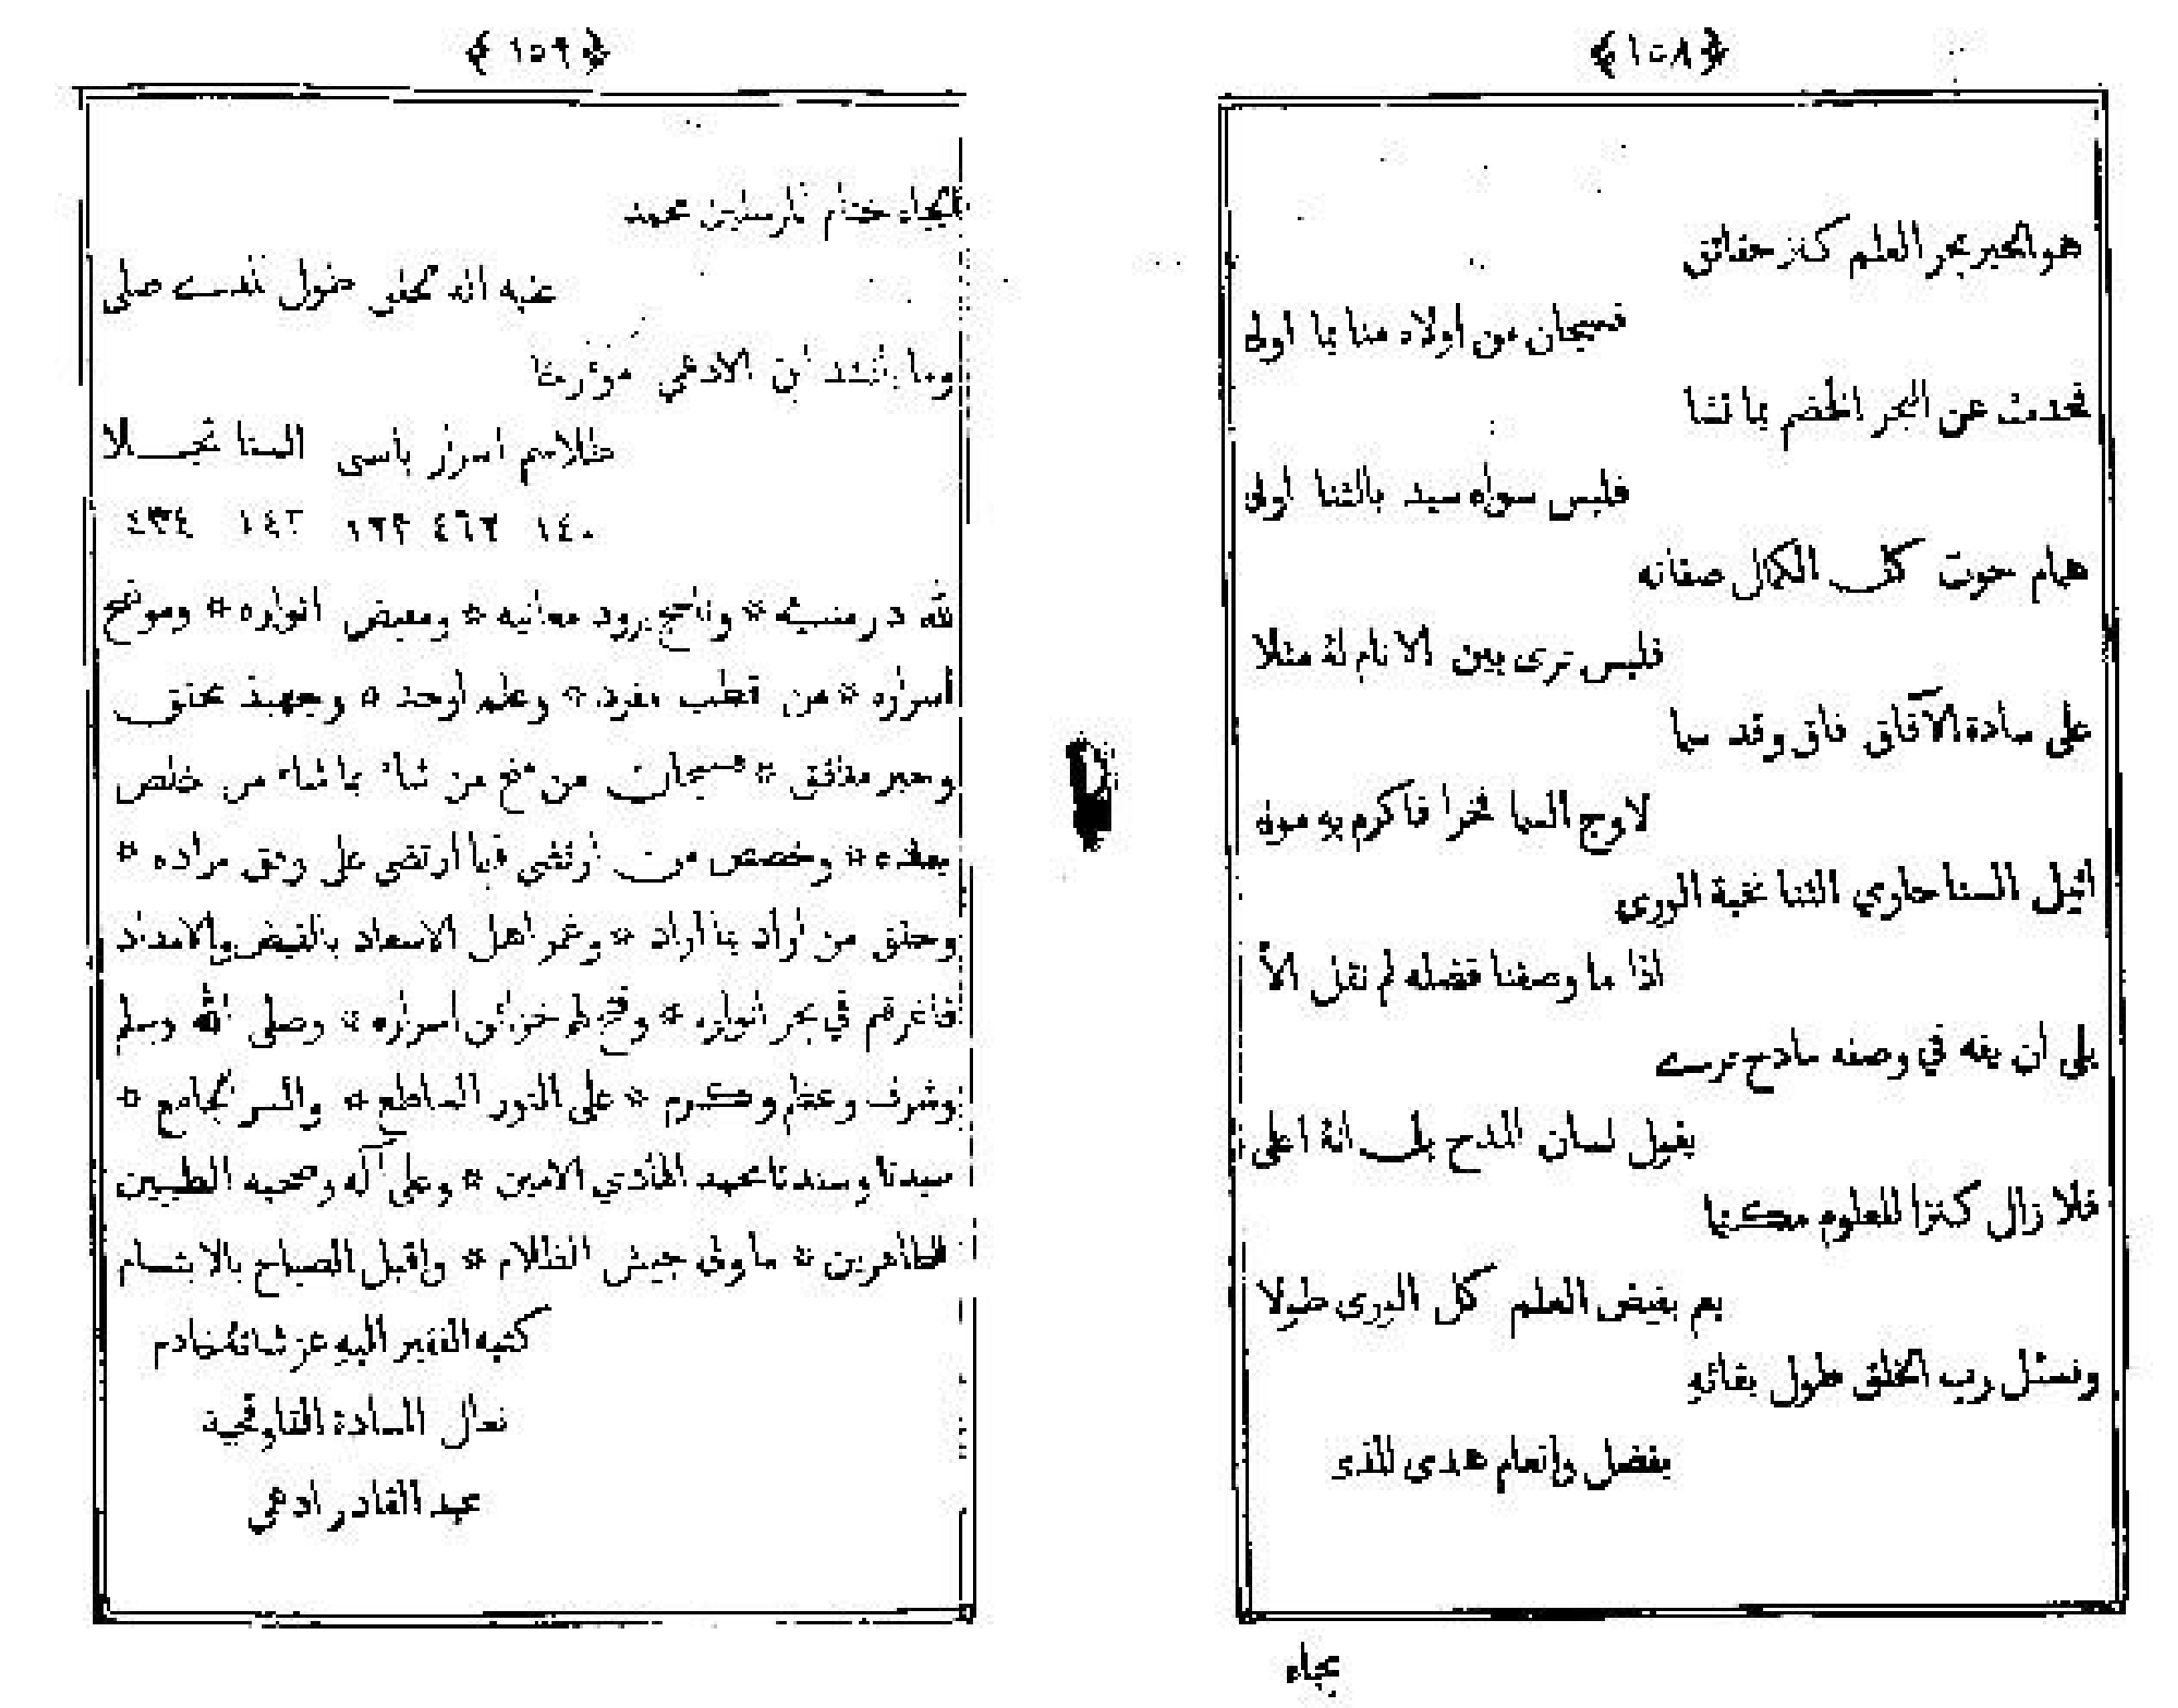 ﴿١٥٨﴾
هو الحبر بحر العلم كنز حقائق
فسبحان من اولاه منا بما اولى
تحدث عن البحر الخضم بما تشا
فليس سواه سيد بالثنا اولى
همام حوت كل الكمال صفاته
فليس ترى بين الانام لهُ مثلا
على سادة الآفاق فاق وقد سما
لاوج السما فخرا فاكرم به مولى
اثيل السنا حاوي الثنا نخبة الورى
اذا ما وصفنا فضله لم نقل الاّ
بلى ان يفه في وصفه مادح ترى
يقول لسان المدح بلى انهُ اعلى
فلا زال كنزا للعلوم مكـ
يعم بفيض العلم كل الورى طولا
ونسئل رب الخلق طول بقائهِ
بفضل وانعام هدى للذي
بجاه
﴿١٥٩﴾
بجاه ختام المرسلين محمد
عليه اله الخلق طول المدى صلى
وما انشد ابن الادهمي مؤرخا
طلاسم اسرار باسمى السنا تجـلا
١٤٠ ٤٦٢ ١٤٢ ٤٣٤
لله در منشيه * وناسج برود معانيه * ومفيض انواره * وموضح
اسراره * من قطب مفرد * وعلم اوحد * وجهبذ محقق
وحبر مدقق * فسبحان من منح من شاء بما شاء من خلص
عباده * وخصص من ارتضى فيما ارتضى على وفق مراده *
وحقق من اراد بما اراد * وغمر اهل الاسعاد بالفيض والامداد
فاغرقهم في بحر انواره * وفتح لهم خزائن اسراره * وصلى الله وسلم
وشرف وعظم وكرم * على النور الساطع * والسر الجامع *
سيدنا وسندنا محمد الهادي الامين * وعلى آله وصحبه الطيبين
الطاهرين * ما ولى جيش الظلام * واقبل الصباح بالابتسام
كتبه الفقير اليه عز شانه خادم
نعال السادة القاوقجية
عبد القادر ادهمي